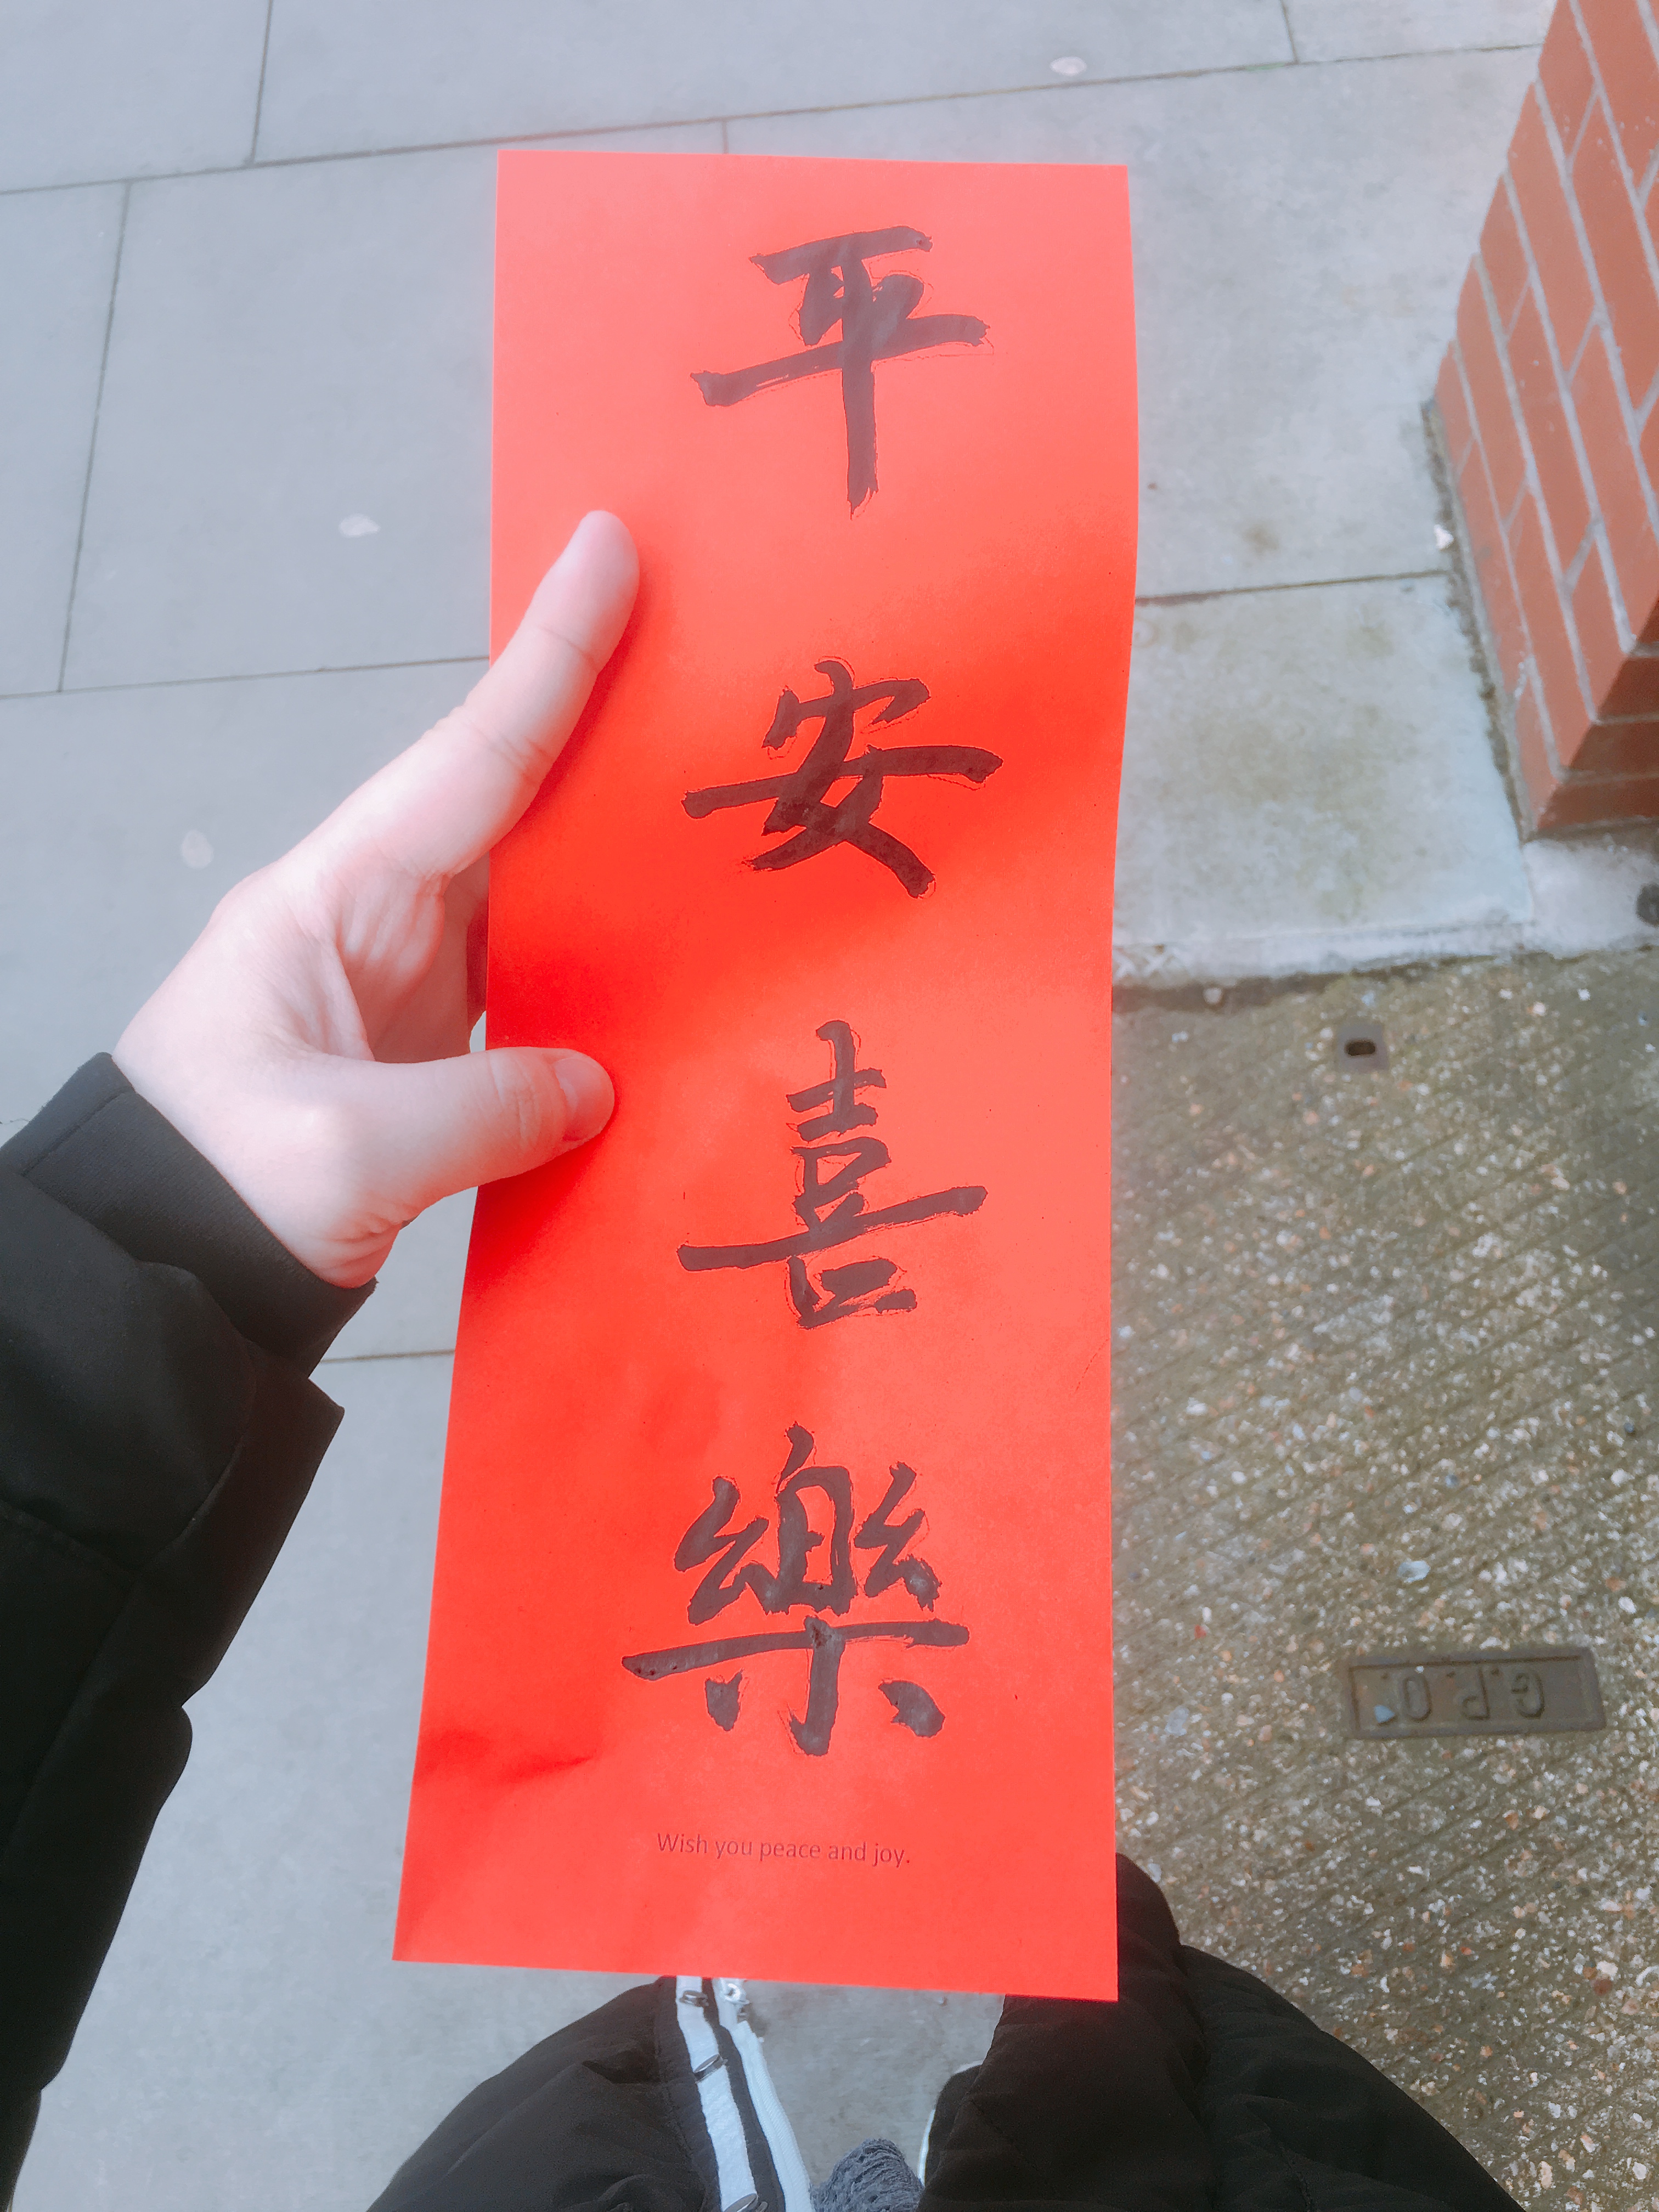 平
安
喜
樂
Wish you peace and joy.
G.P.O.